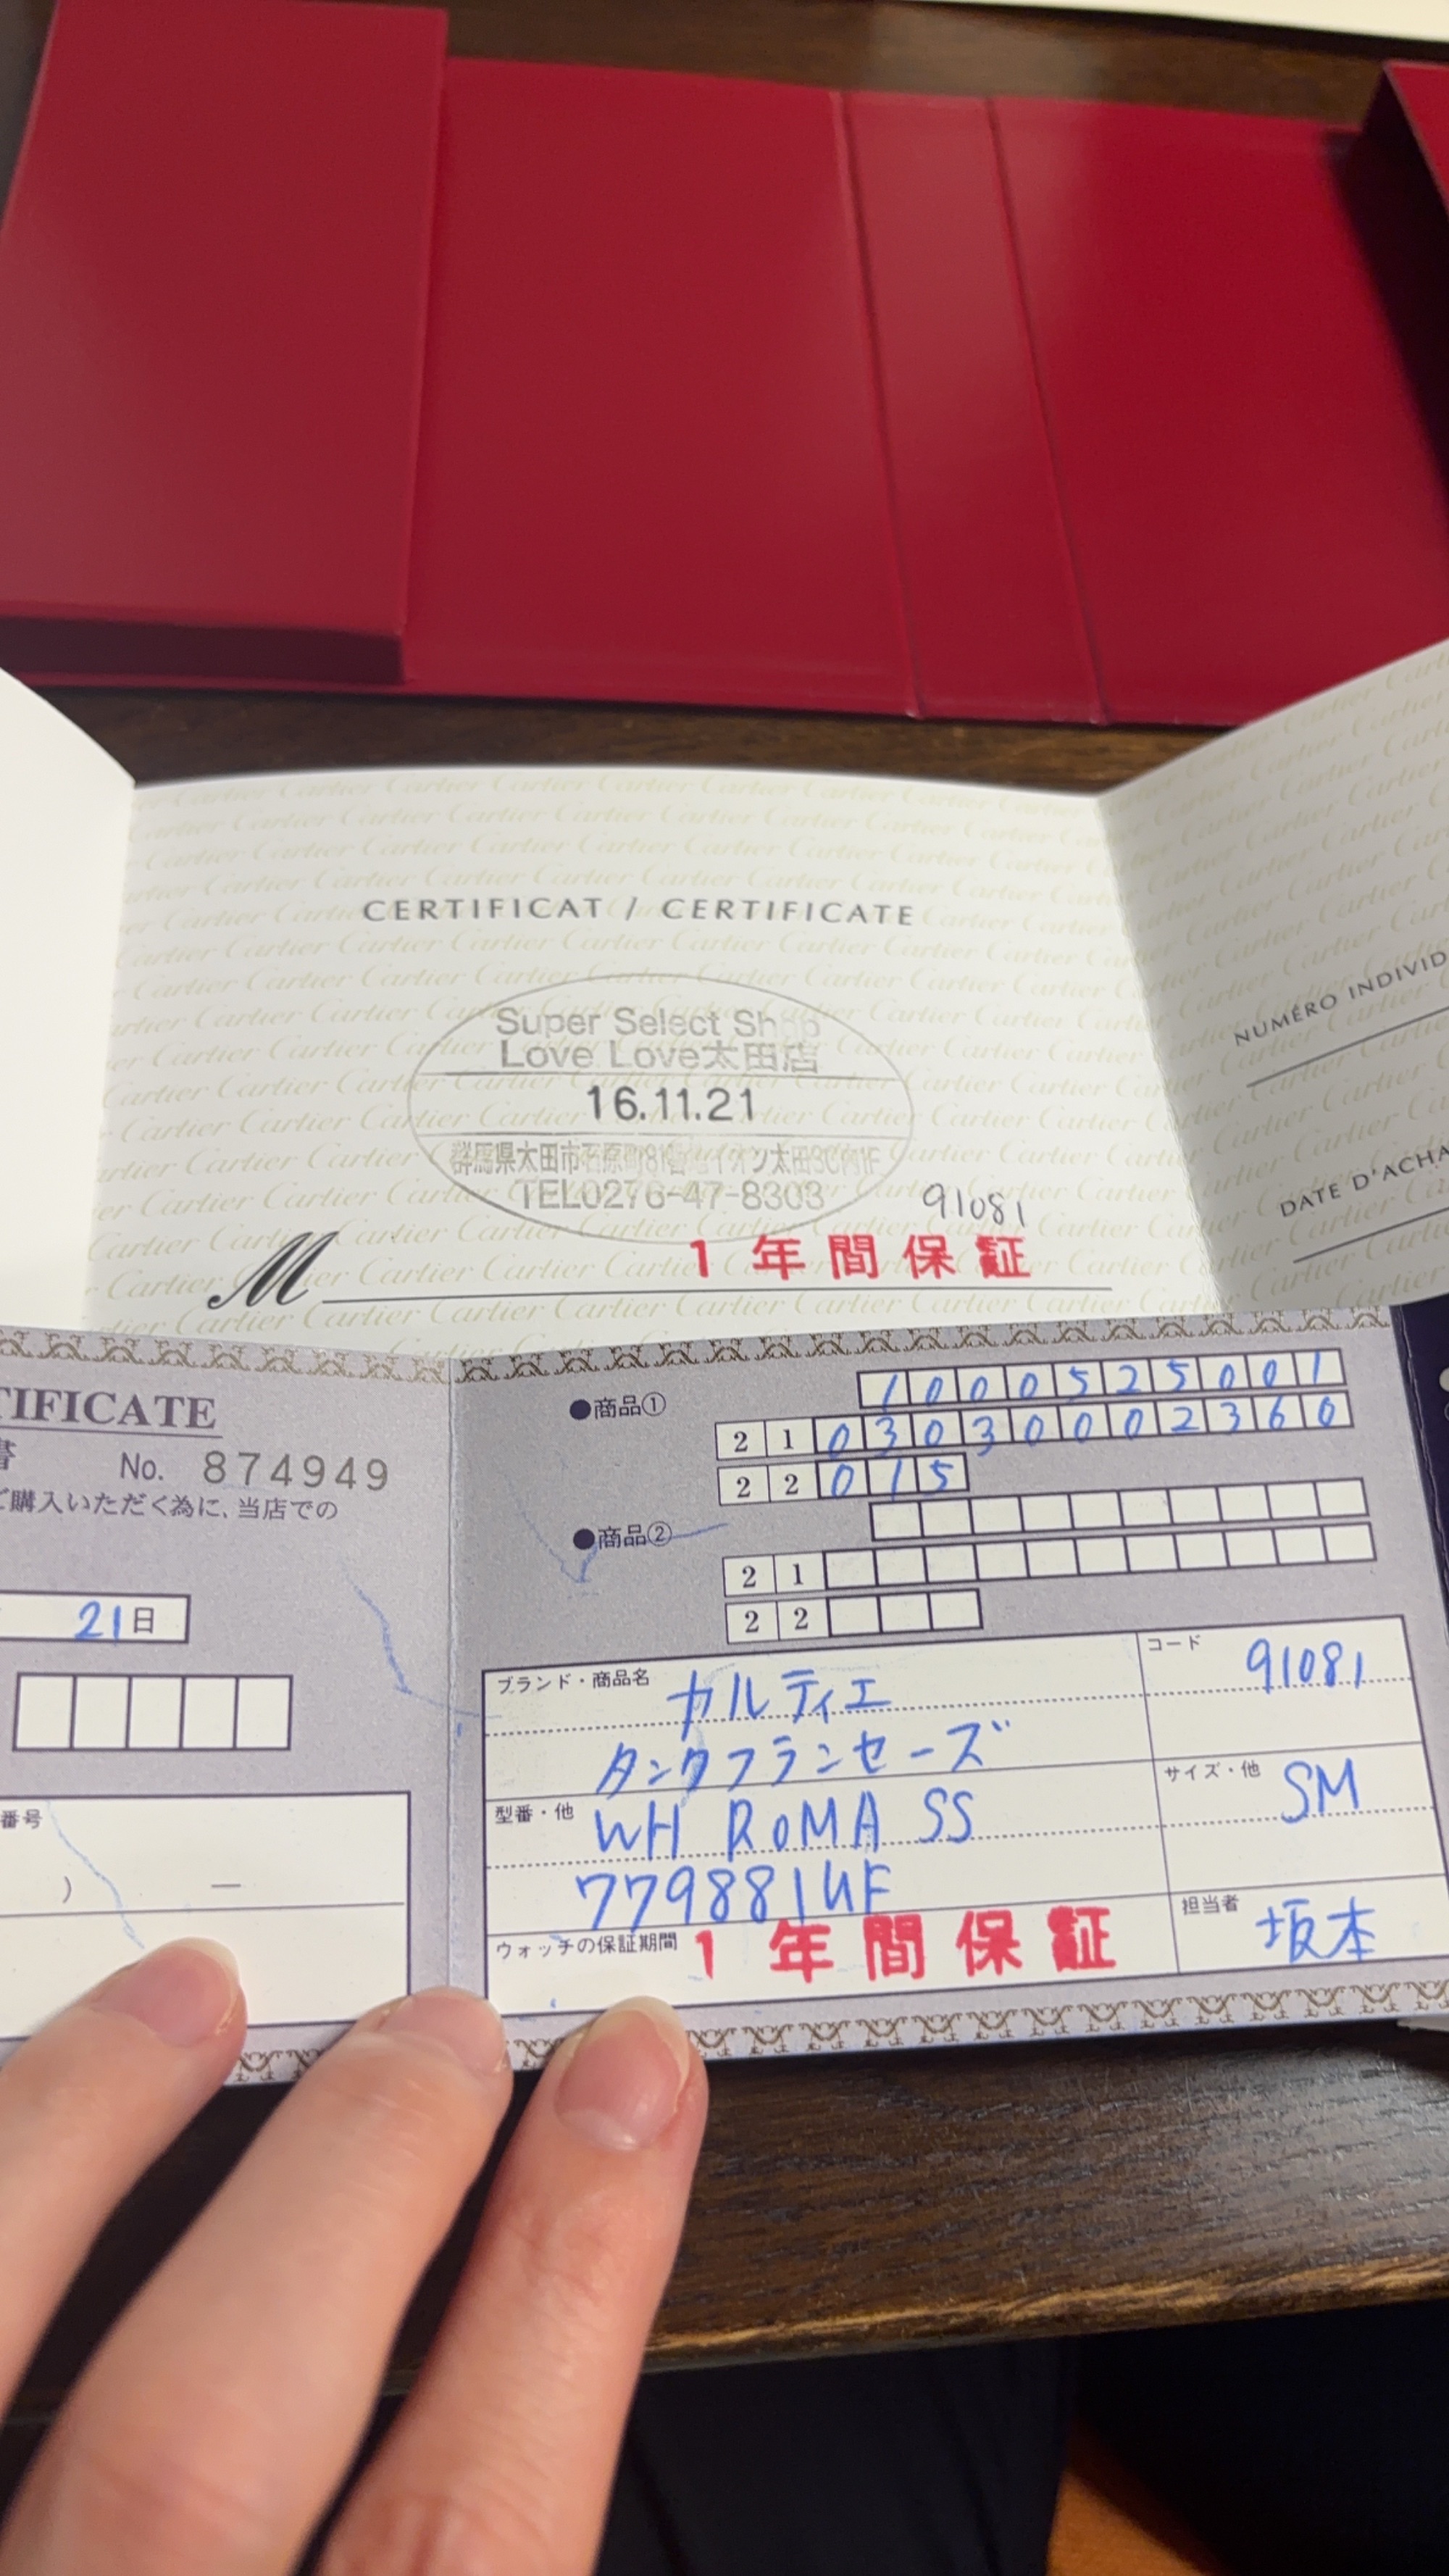 CERTIFICAT / CERTIFICATE
Super Select Shop
Love Love太田店
16.11.21
群馬県太田市石原町81番地イオン太田SC内1F
TEL0276-47-8303
91081
1年間保証
M
NUMÉRO INDIVID
DATE D'ACHA
TIFICATE
書 No. 874949
ご購入いただく為に、当店での
21日
番号
) —
●商品① 1000525001
21 03030002360
22 015
●商品②
21
22
ブランド・商品名 カルティエ
タンクフランセーズ
コード 91081
型番・他 WH ROMA SS
779881UF
サイズ・他 SM
ウォッチの保証期間 1年間保証
担当者 坂本